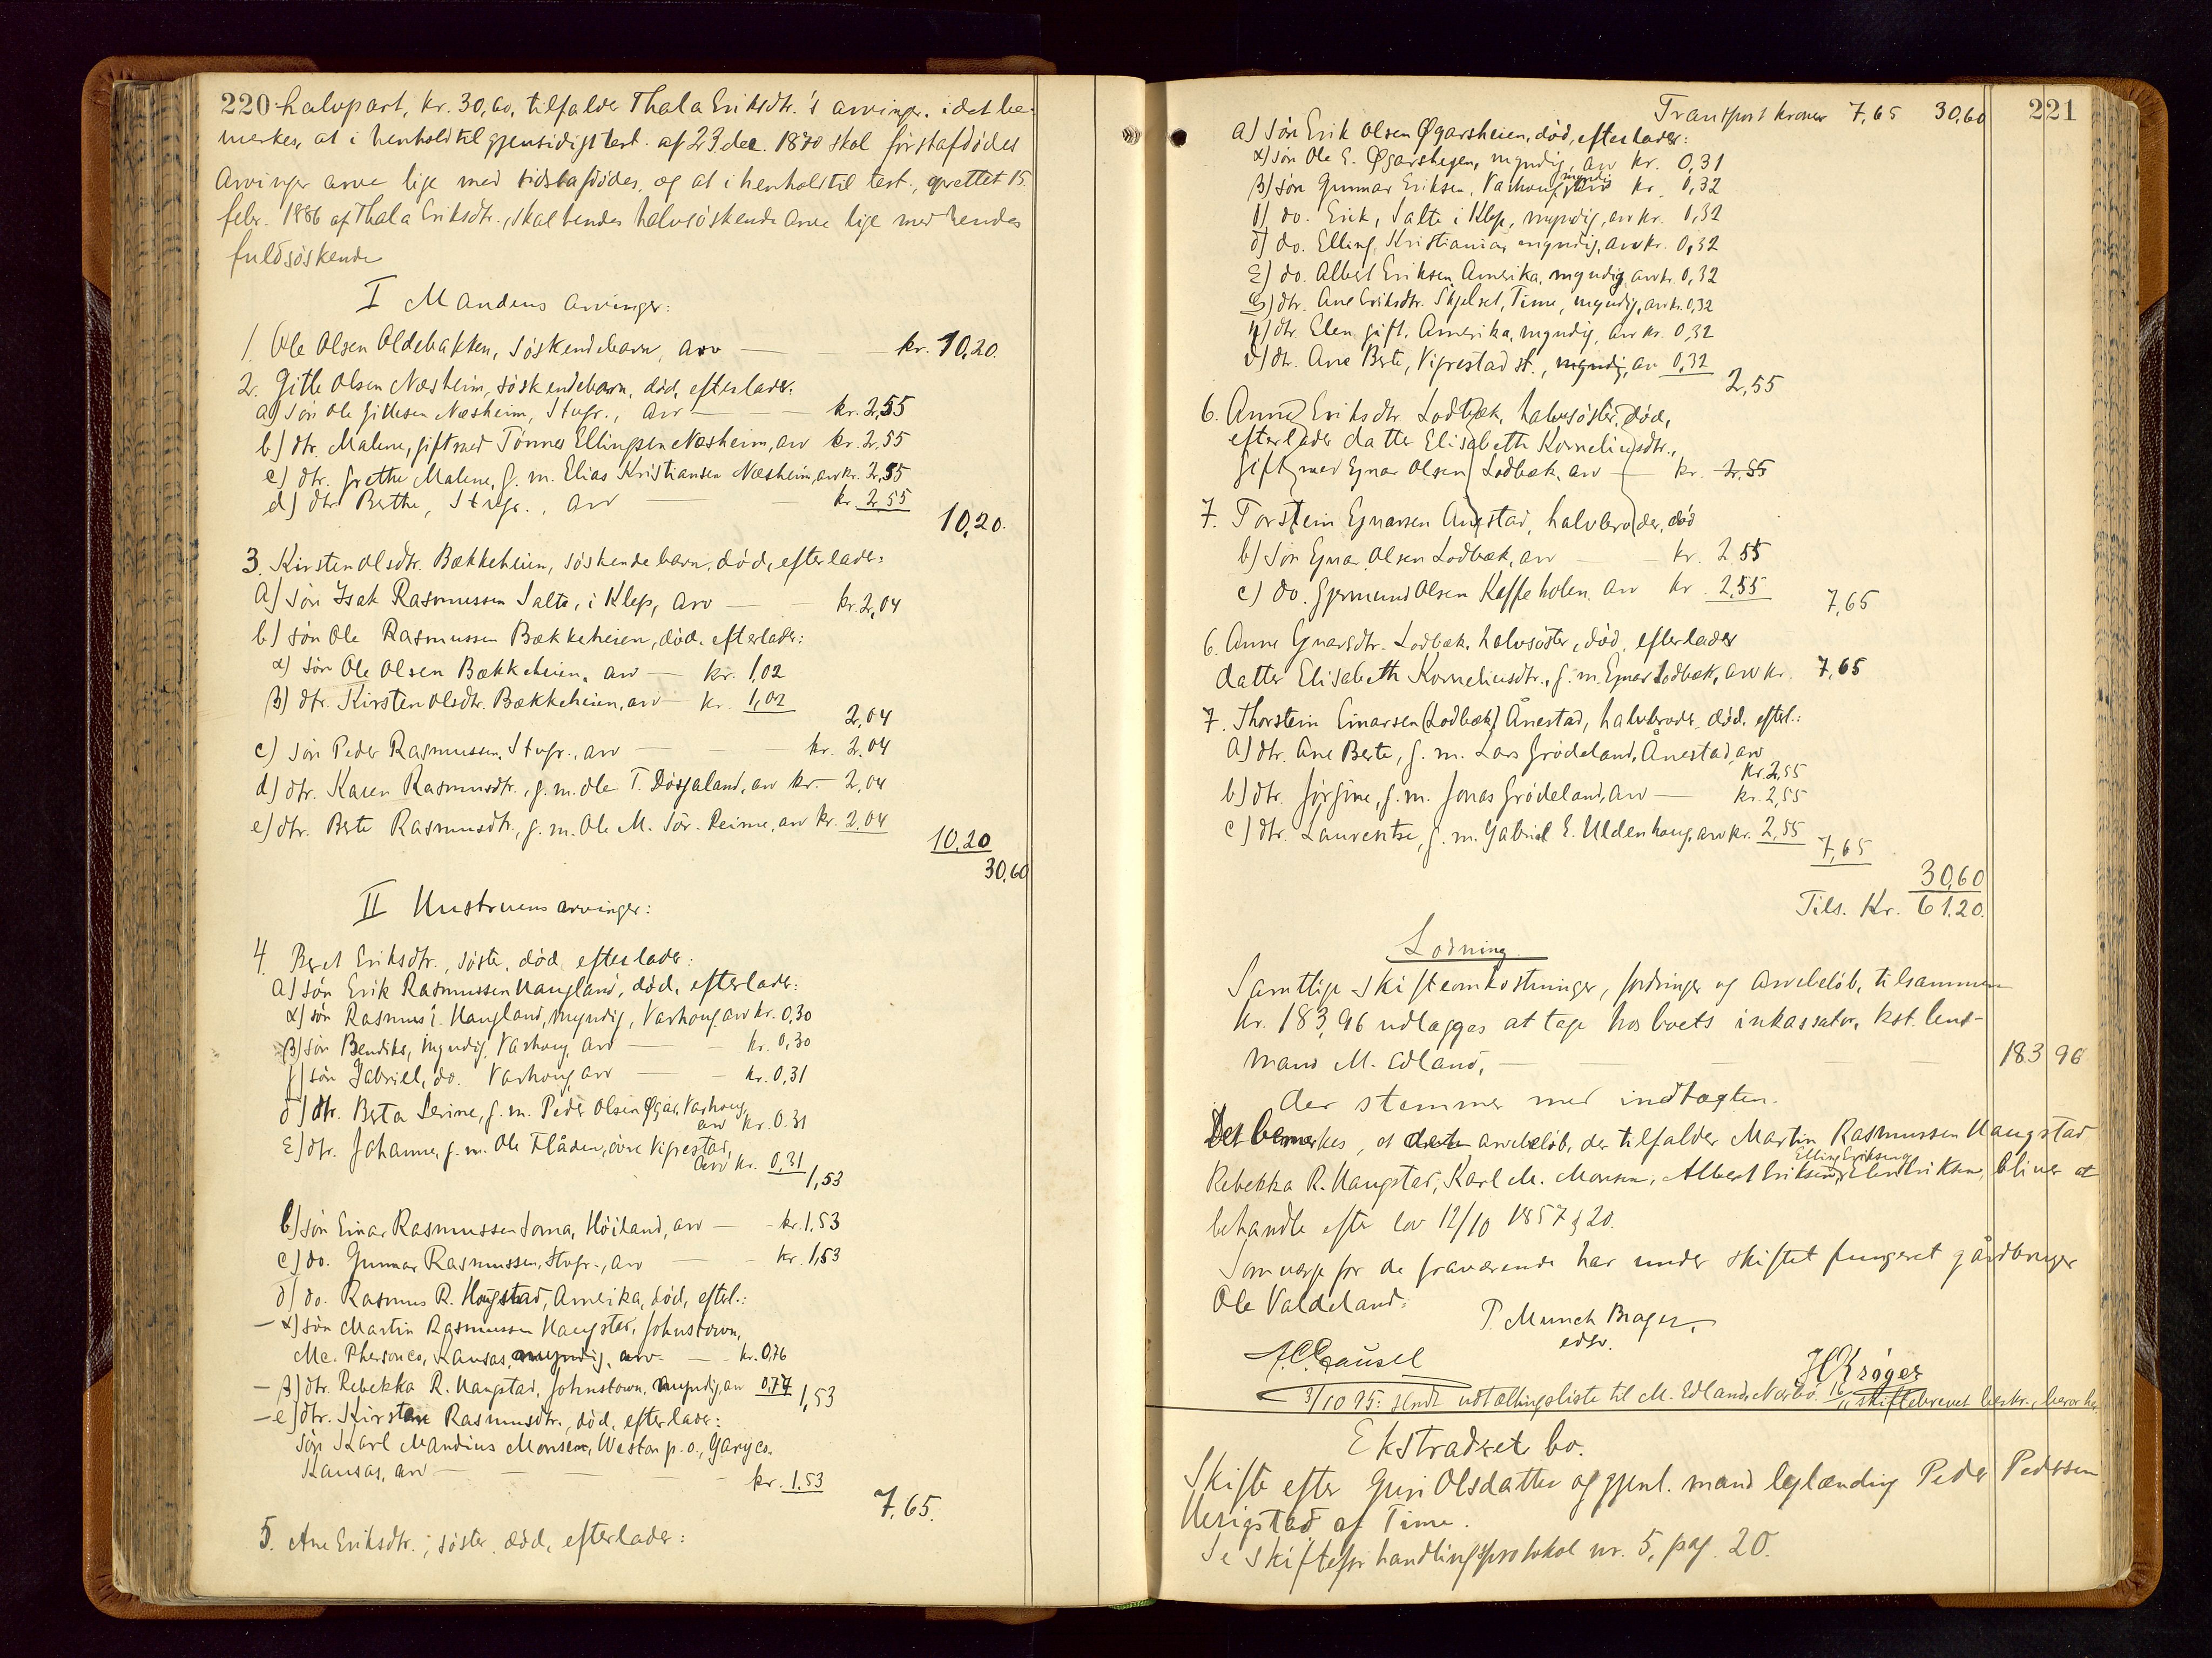 220 halvpart, kr. 30,60, tilfalder Thala Eriksdtr.'s arvinger, idet be-
merkes, at i henhold til gjensidigt test. af 23 dec. 1870 skal førstafdødes
arvinger arve lige med sidstafdødes, og at i henhold til test., oprettet 15
febr. 1886 af Thala Eriksdtr., skal hendes halvsöskende arve lige med hendes
fuldsöskende
I Mandens arvinger:
1. Ole Olsen Oldebakken, söskendebarn, arv — kr. 10,20.
2. Gitle Olsen Næsheim, söskendebarn, död, efterlader:
a) sön Ole Gitlesen Næsheim, Stvgr., arv — kr. 2,55
b) dtr. Malene, gift med Tönnes Ellingsen Næsheim, arv kr. 2,55
c) dtr. Grethe Malene, g. m. Elias Kristiansen Næsheim, arv kr. 2,55
d) dtr Berthe, Stvgr., arv — kr. 2,55
10,20.
3. Kirsten Olsdtr. Bækkeheien, söskendebarn, död, efterlader:
a) sön Isak Rasmussen Salte, i Klep, arv — kr. 2,04
b) sön Ole Rasmussen Bækkeheien, död, efterlader:
α) sön Ole Olsen Bækkeheien, arv — kr. 1,02
β) dtr. Kirsten Olsdtr. Bækkeheien, arv — kr. 1,02
2,04
c) sön Peder Rasmussen, Stvgr., arv — kr. 2,04
d) dtr. Karen Rasmusdtr., g. m. Ole T. Dösjaland, arv kr. 2,04
e) dtr. Berte Rasmusdtr., g. m. Ole M. Sör-Reime, arv kr. 2,04
10,20
30,60
II Hustruens arvinger:
4. Beret Eriksdtr., söster, död, efterlader:
a) sön Erik Rasmussen Haugland, död, efterlader:
α) sön Rasmus i Haugland, myndig, Varhoug, arv kr. 0,30
β) sön Bendiks, myndig, Varhoug, arv — kr. 0,30
γ) sön Gabriel, do. Varhoug, arv — kr. 0,31
δ) dtr. Berta Serine, g. m. Peder Olsen Øgar, Varhoug,
arv kr. 0.31
ε) dtr. Johanne, g. m. Ole Flåden, övre Vigrestad,
arv kr. 0,31
1,53
b) sön Einar Rasmussen Soma, Höiland, arv — kr. 1,53
c) do. Gunnar Rasmussen, Stvgr., arv — kr. 1,53
d) do. Rasmus R. Haugstad, Amerika, död, efterl.:
— α) sön Martin Rasmussen Haugstad, Johnstown,
Mc. Pherson co, Kansas, myndig, arv — kr. 0,76
— β) dtr. Rebekka R. Haugstad, Johnstown, myndig, arv 0,77
1,53
— e) dtr. Kirsten Rasmusdtr., död, efterlader:
sön Karl Mandius Monsen, Weston p. o., Gary co.
Kansas, arv — kr. 1,53
7,65.
5. Ane Eriksdtr., söster, död, efterlader:
221
Transport kroner 7,65 30,60
a) sön Erik Olsen Øgarsheien, död, efterlader:
α) sön Ole E. Øgarsheien, myndig, arv kr. 0,31
β) sön Gunnar Eriksen, Varhoug, myndig arv kr. 0,32
γ) do. Erik, Salte i Klep, myndig, arv kr. 0,32
δ) do. Elling, Kristiania, myndig, arv kr. 0,32
ε) do. Albert Eriksen, Amerika, myndig, arv kr. 0,32
ς) dtr. Ane Eriksdtr. Skjelset, Time, myndig, arv kr. 0,32
η) dtr. Elen, gift, Amerika, myndig, arv kr. 0,32
ϑ) dtr. Ane Berte, Vigrestad st., myndig, arv 0,32
2,55
6. Anne Eriksdtr. Lodbæk, halvsöster, död,
efterlader datter Elisabeth Korneliusdtr.,
gift med Ejnar Olsen Lodbæk, arv — kr. 2,55
7. Torstein Ejnarsen Ånestad, halvbroder, död
b) sön Ejnar Olsen Lodbæk, arv — kr. 2,55
c) do. Gjermund Olsen Kaffeholen, arv kr. 2,55
7,65
6. Anne Ejnarsdtr. Lodbæk, halvsöster, död, efterlader
datter Elisabeth Korneliusdtr., g. m. Ejnar Lodbæk, arv kr. 7,65
7. Thorstein Einarsen (Lodbæk) Ånestad, halvbroder, död, efterl.:
a) dtr. Ane Berte, g. m. Lars Grödeland, Ånestad, arv
kr. 2,55
b) dtr. Jörgine, g. m. Jonas Grödeland, arv — kr. 2,55
c) dtr. Laurentse, g. m. Gabriel E. Uldenhaug, arv kr. 2,55
7,65
30,60
Tils. Kr. 61,20.
Lodning
Samtlige skifteomkostninger, fordringer og arvebelöb, tilsammen
kr. 183,96 udlægges at tage hos boets inkassator, kst. lens-
mand M. Edland, — 183 96
der stemmer med indtægten.
Det bemerkes, at de arvebelöb, der tilfalder Martin Rasmussen Haugstad
Rebekka R. Haugstad, Karl M. Monsen, Albert Eriksen, Elling Eriksen og Elen Eriksen, bliver at
behandle efter lov 12/10 1857 § 20.
Som verge for de fraværende har under skiftet fungeret gårdbruger
Ole Valdeland.
P. Munch Brager,
edsv.
A.C. Gausel
H Krøger
3/10 95: sendt udtællingsliste til M. Edland, Nærbö. 16/11 skiftebrevet beskr.,
Ekstradret bo.
Skifte efter Guri Olsdatter og gjenl. mand leglænding Peder Pedersen
Herigstad af Time.
Se skifteforhandlingsprotokol nr. 5, pag. 20.